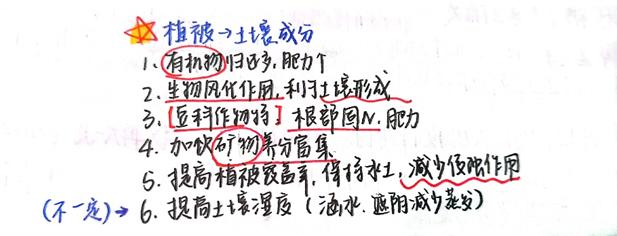 植被→土壤成分
1. 有机物归还多,肥力↑
2. 生物风化作用,利于土壤形成
3. [豆科作物特] 根部固N.肥力
4. 加快矿物养分富集
5. 提高植被覆盖率,保持水土,减少侵蚀作用
(不一定)→ 6. 提高土壤湿度(涵水.遮阴减少蒸发)